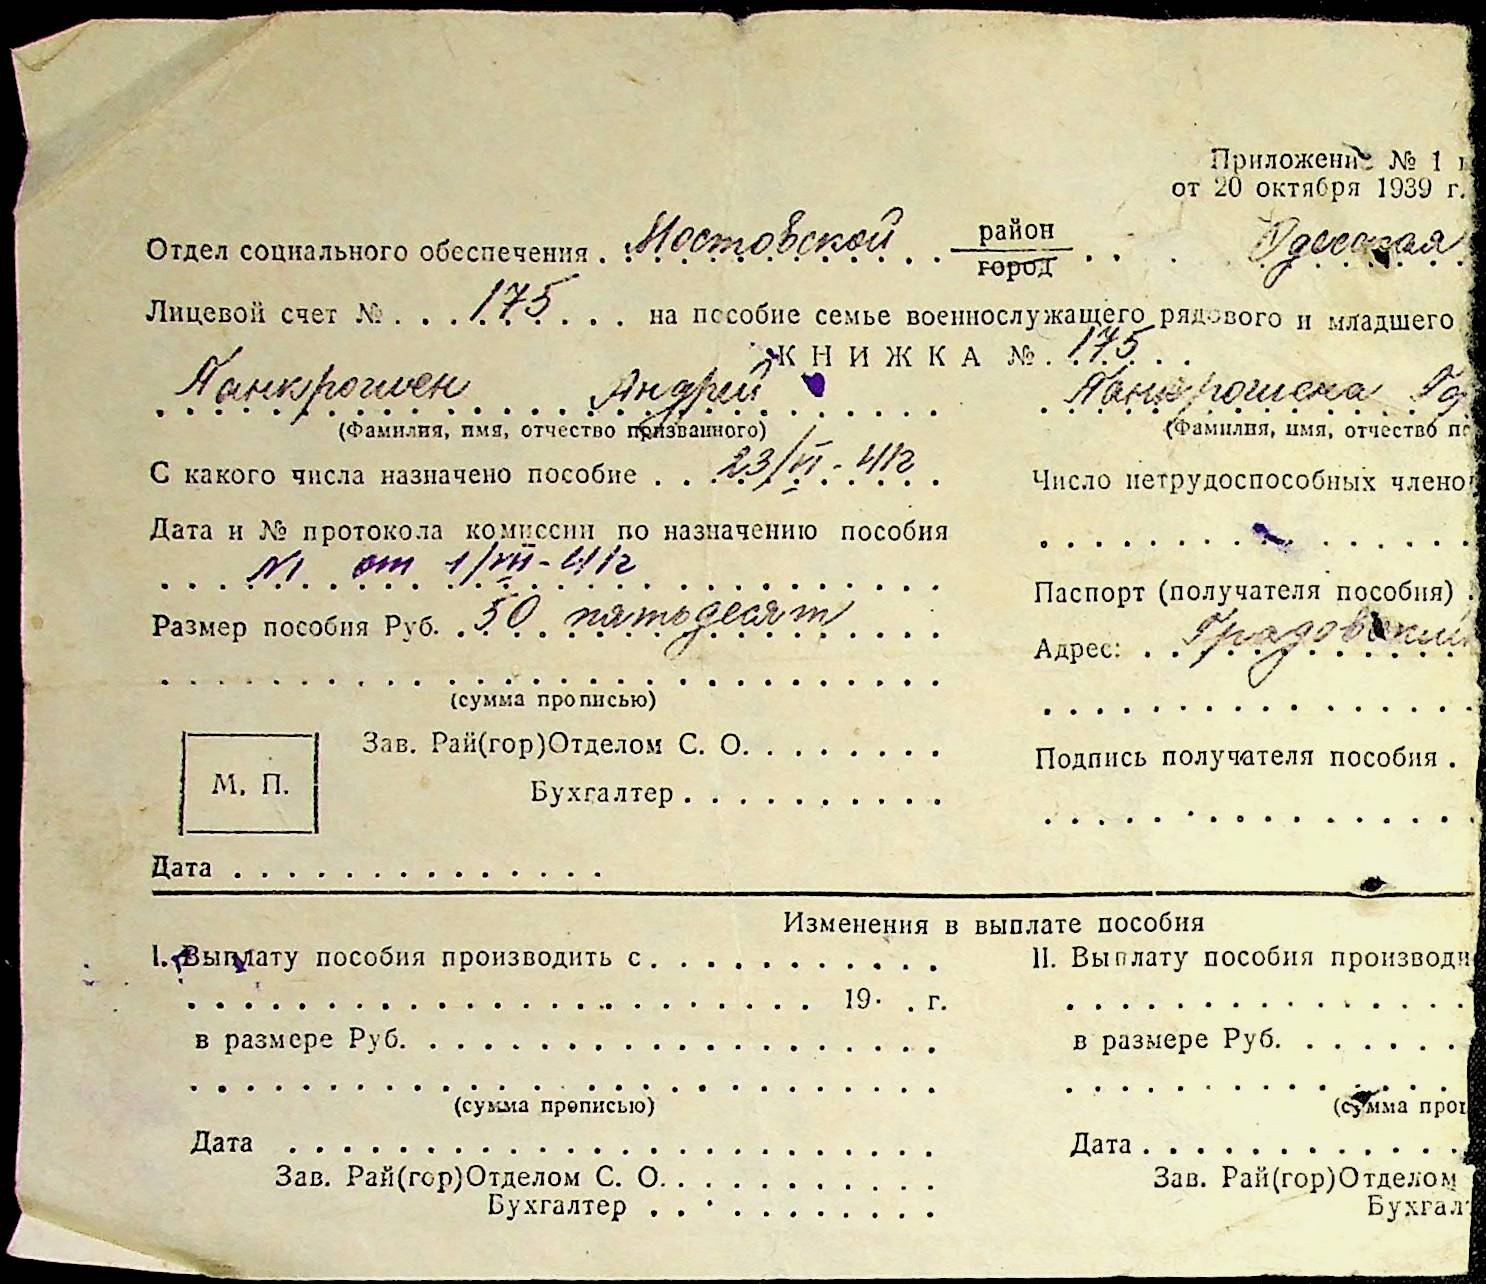 Приложение № 1
от 20 октября 1939 г.
Отдел социального обеспечения . Мостовской район Одесская
город
Лицевой счет № . . . 175 . . . на пособие семье военнослужащего рядового и младшего
КНИЖКА № . 175 . .
Андрей
(Фамилия, имя, отчество призванного) (Фамилия, имя, отчество
С какого числа назначено пособие . . 23/VI - 41г Число нетрудоспособных члено
Дата и № протокола комиссии по назначению пособия
№1 от 1/VII - 41г
Паспорт (получателя пособия)
Размер пособия Руб. . 50 пятьдесят
Адрес: . .
(сумма прописью)
Зав. Рай(гор)Отделом С. О. . . . . . . .
Подпись получателя пособия .
М. П.
Бухгалтер . . . . . . . . . .
Дата . . . . . . . . . . . . . .
Изменения в выплате пособия
I. Выплату пособия производить с . . . . . . . . . . . II. Выплату пособия производи
19 . . г.
в размере Руб. . . . . . . . . . . . . . . . . . . . в размере Руб. . . . . . .
(сумма прописью) (сумма про
Дата . . . . . . . . . . . . . . . . . . . . . . . Дата . . . . . . . . . . .
Зав. Рай(гор)Отделом С. О. . . . . . . . . . . Зав. Рай(гор)Отделом
Бухгалтер . . . . . . . . . . . Бухгал